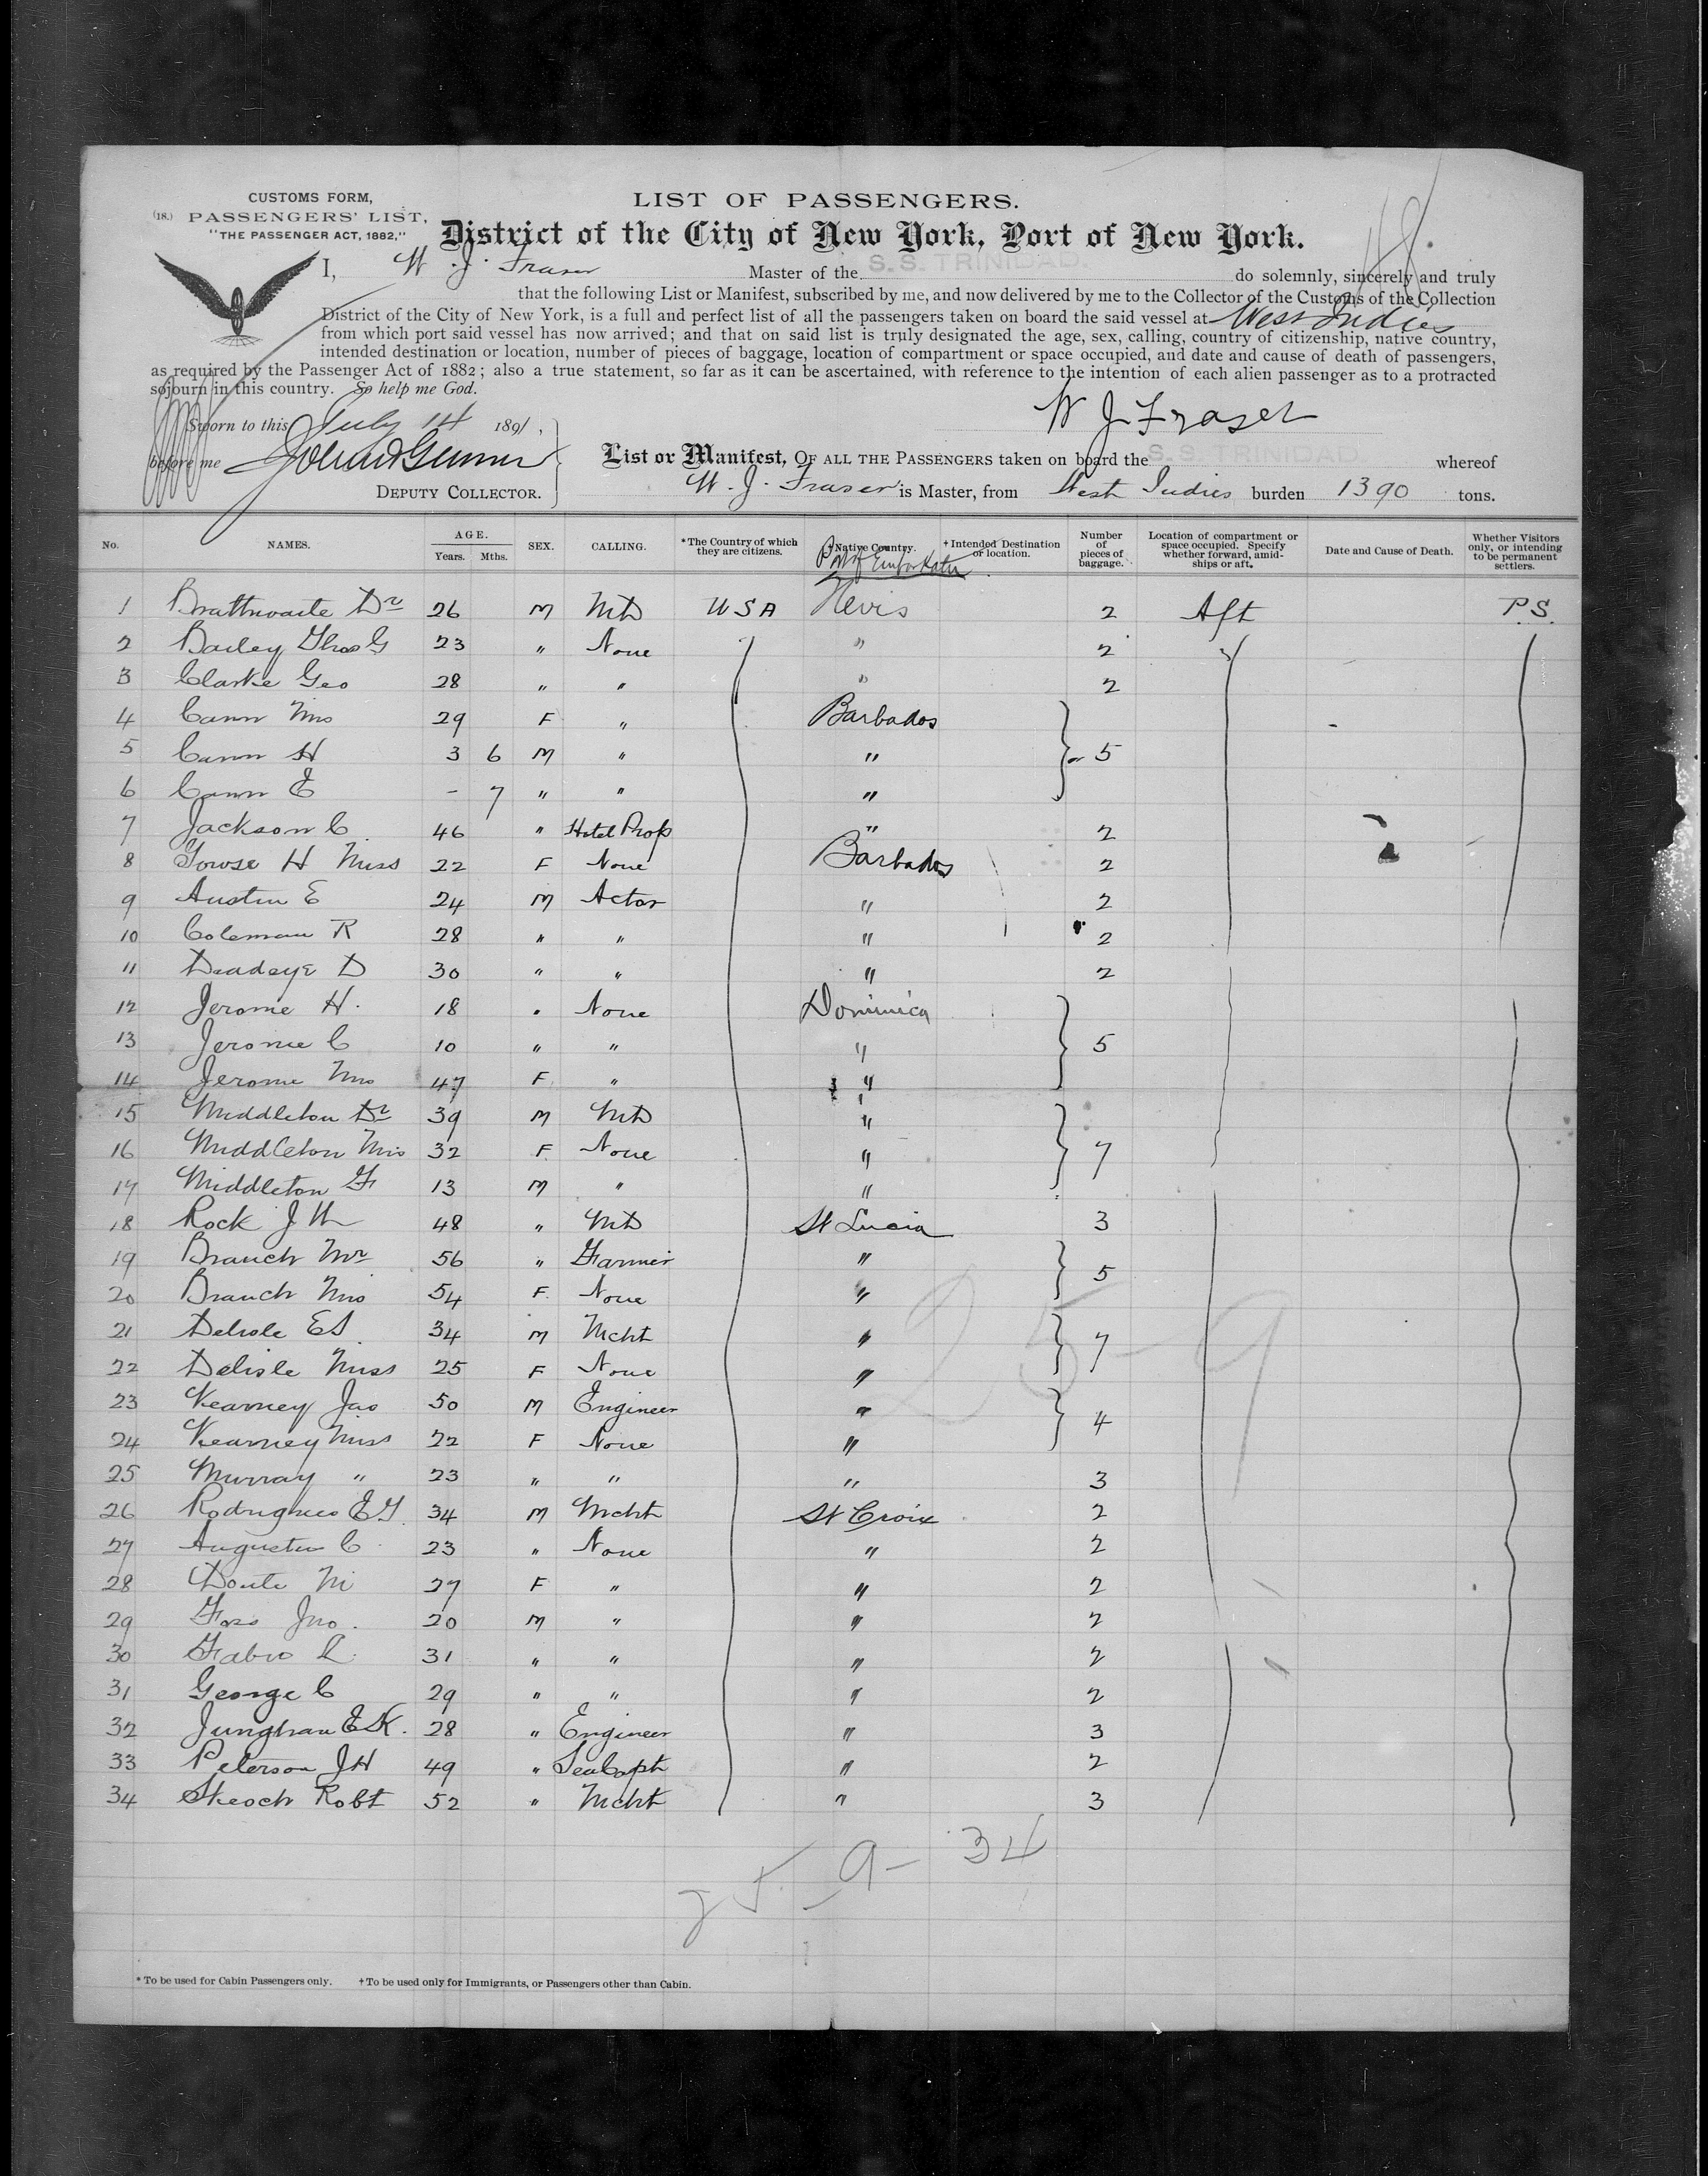 CUSTOMS FORM,
(18.) PASSENGERS' LIST,
"THE PASSENGER ACT, 1882."
LIST OF PASSENGERS.
District of the City of New York, Port of New York.
I, W. J. Fraser Master of the S. S. TRINIDAD. do solemnly, sincerely and truly
that the following List or Manifest, subscribed by me, and now delivered by me to the Collector of the Customs of the Collection
District of the City of New York, is a full and perfect list of all the passengers taken on board the said vessel at West Indies
from which port said vessel has now arrived; and that on said list is truly designated the age, sex, calling, country of citizenship, native country,
intended destination or location, number of pieces of baggage, location of compartment or space occupied, and date and cause of death of passengers,
as required by the Passenger Act of 1882; also a true statement, so far as it can be ascertained, with reference to the intention of each alien passenger as to a protracted
sojourn in this country. So help me God.
W J Fraser
Sworn to this July 14 1891,
before me
DEPUTY COLLECTOR.
List or Manifest, OF ALL THE PASSENGERS taken on board the S. S. TRINIDAD. whereof
W. J. Fraser is Master, from West Indies burden 1390 tons.
No. NAMES. AGE. Years. Mths. SEX. CALLING. *The Country of which they are citizens. †Native Country. †Intended Destination or location. Number of pieces of baggage. Location of compartment or space occupied. Specify whether forward, amidships or aft. Date and Cause of Death. Whether Visitors only, or intending to be permanent settlers.
Port of Embarkatn
1 Brathwaite Dr 26 M MD USA Nevis 2 Aft P.S.
2 Bailey Thos G 23 " None " 2
3 Clarke Geo 28 " " " 2
4 Cann Mrs 29 F " Barbados
5 Cann H 3 6 M " " 5
6 Cann E - 7 " " "
7 Jackson C 46 " Hotel Prop " 2
8 Gowse H Miss 22 F None Barbados 2
9 Austin E 24 M Actor " 2
10 Coleman R 28 " " " 2
11 Deadeye D 30 " " " 2
12 Jerome H. 18 " None Dominica
13 Jerome C 10 " " " 5
14 Jerome Mrs 47 F " "
15 Middleton Dr 39 M MD "
16 Middleton Mrs 32 F. None " 7
17 Middleton F 13 M " "
18 Rock J W 48 " MD St Lucia 3
19 Branch Mr 56 " Farmer "
20 Branch Mrs 54 F. None " 5
21 Delisle ES 34 M Mcht "
22 Delisle Miss 25 F None " 7
23 Kearney Jas 50 M Engineer "
24 Kearney Miss 22 F None " 4
25 Murray " 23 " " " 3
26 Rodrigues E G. 34 M Mcht St Croix 2
27 Augustin C 23 " None " 2
28 M 27 F " " 2
29 Jno. 20 M " " 2
30 31 " " " 2
31 George C 29 " " " 2
32 Junghan E K. 28 " Engineer " 3
33 Peterson J H 49 " Sea Capt " 2
34 Skeoch Robt 52 " Mcht " 3
25-9
25-9-34
* To be used for Cabin Passengers only. † To be used only for Immigrants, or Passengers other than Cabin.